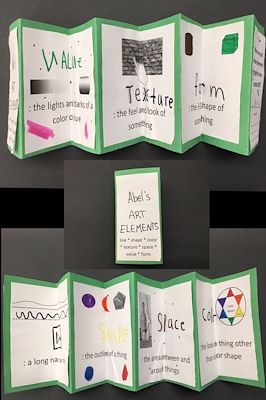 Value
: the lights and darks of a
color
Texture
: the feel and look of
something
form
: the
shape of
Abel's
ART
ELEMENTS
line * shape * color
* texture * space *
value * form
: a long
Shape
: the outline of a thing
Space
: the area between and
around things
Color
: the look
thing other
than color shape